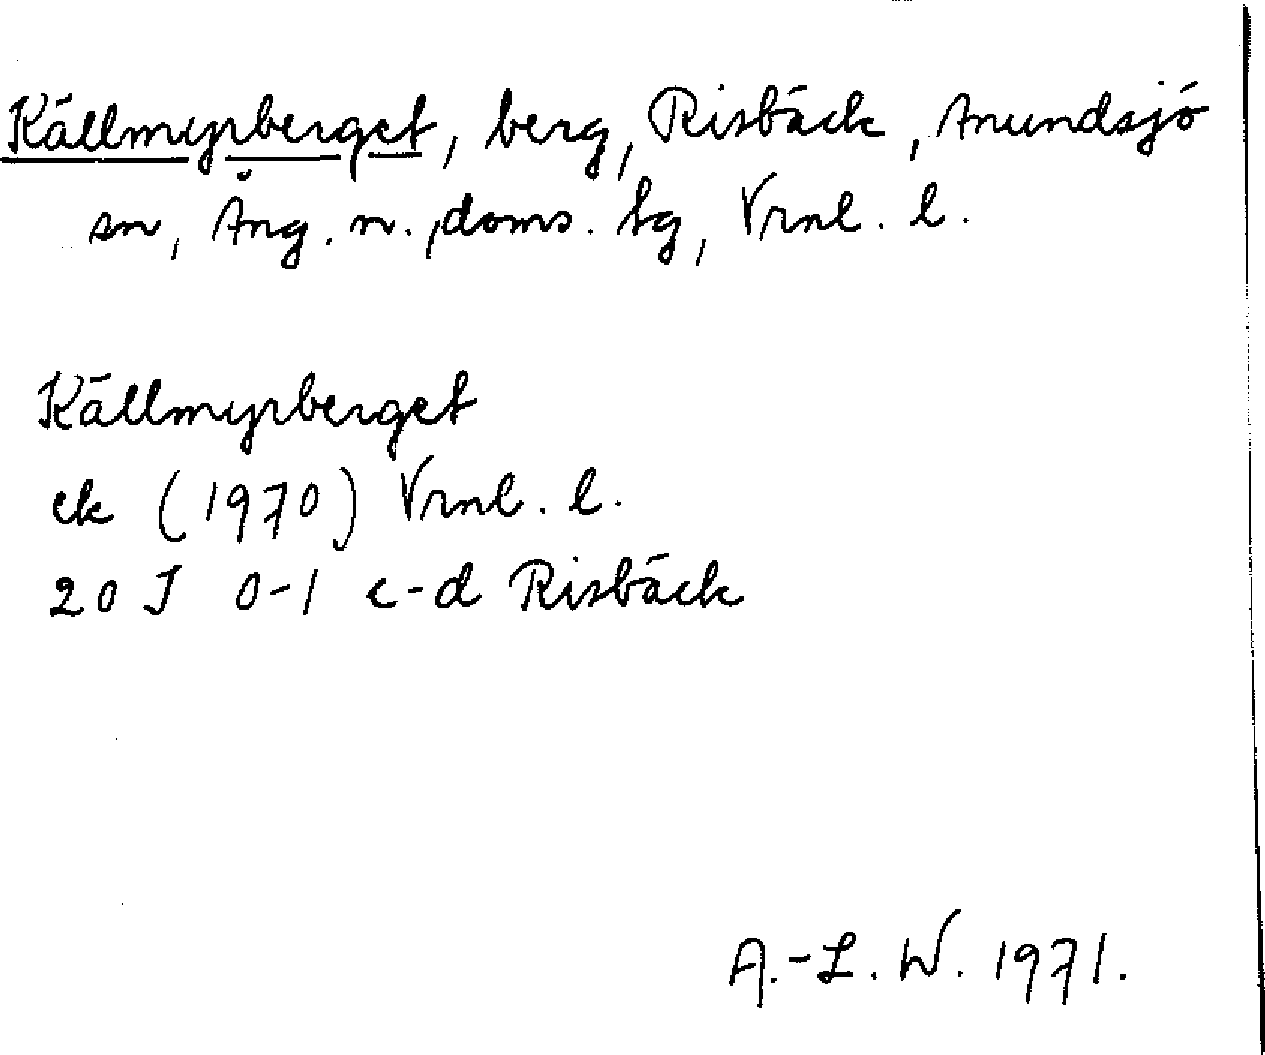 Källmyrberget, berg, Risbäck, Anundsjö
sn, Ång. n. doms. tg, Vrnl. l.
Källmyrberget
ek (1970) Vrnl. l.
20 J 0-1 c-d Risbäck
A.-L. W. 1971.